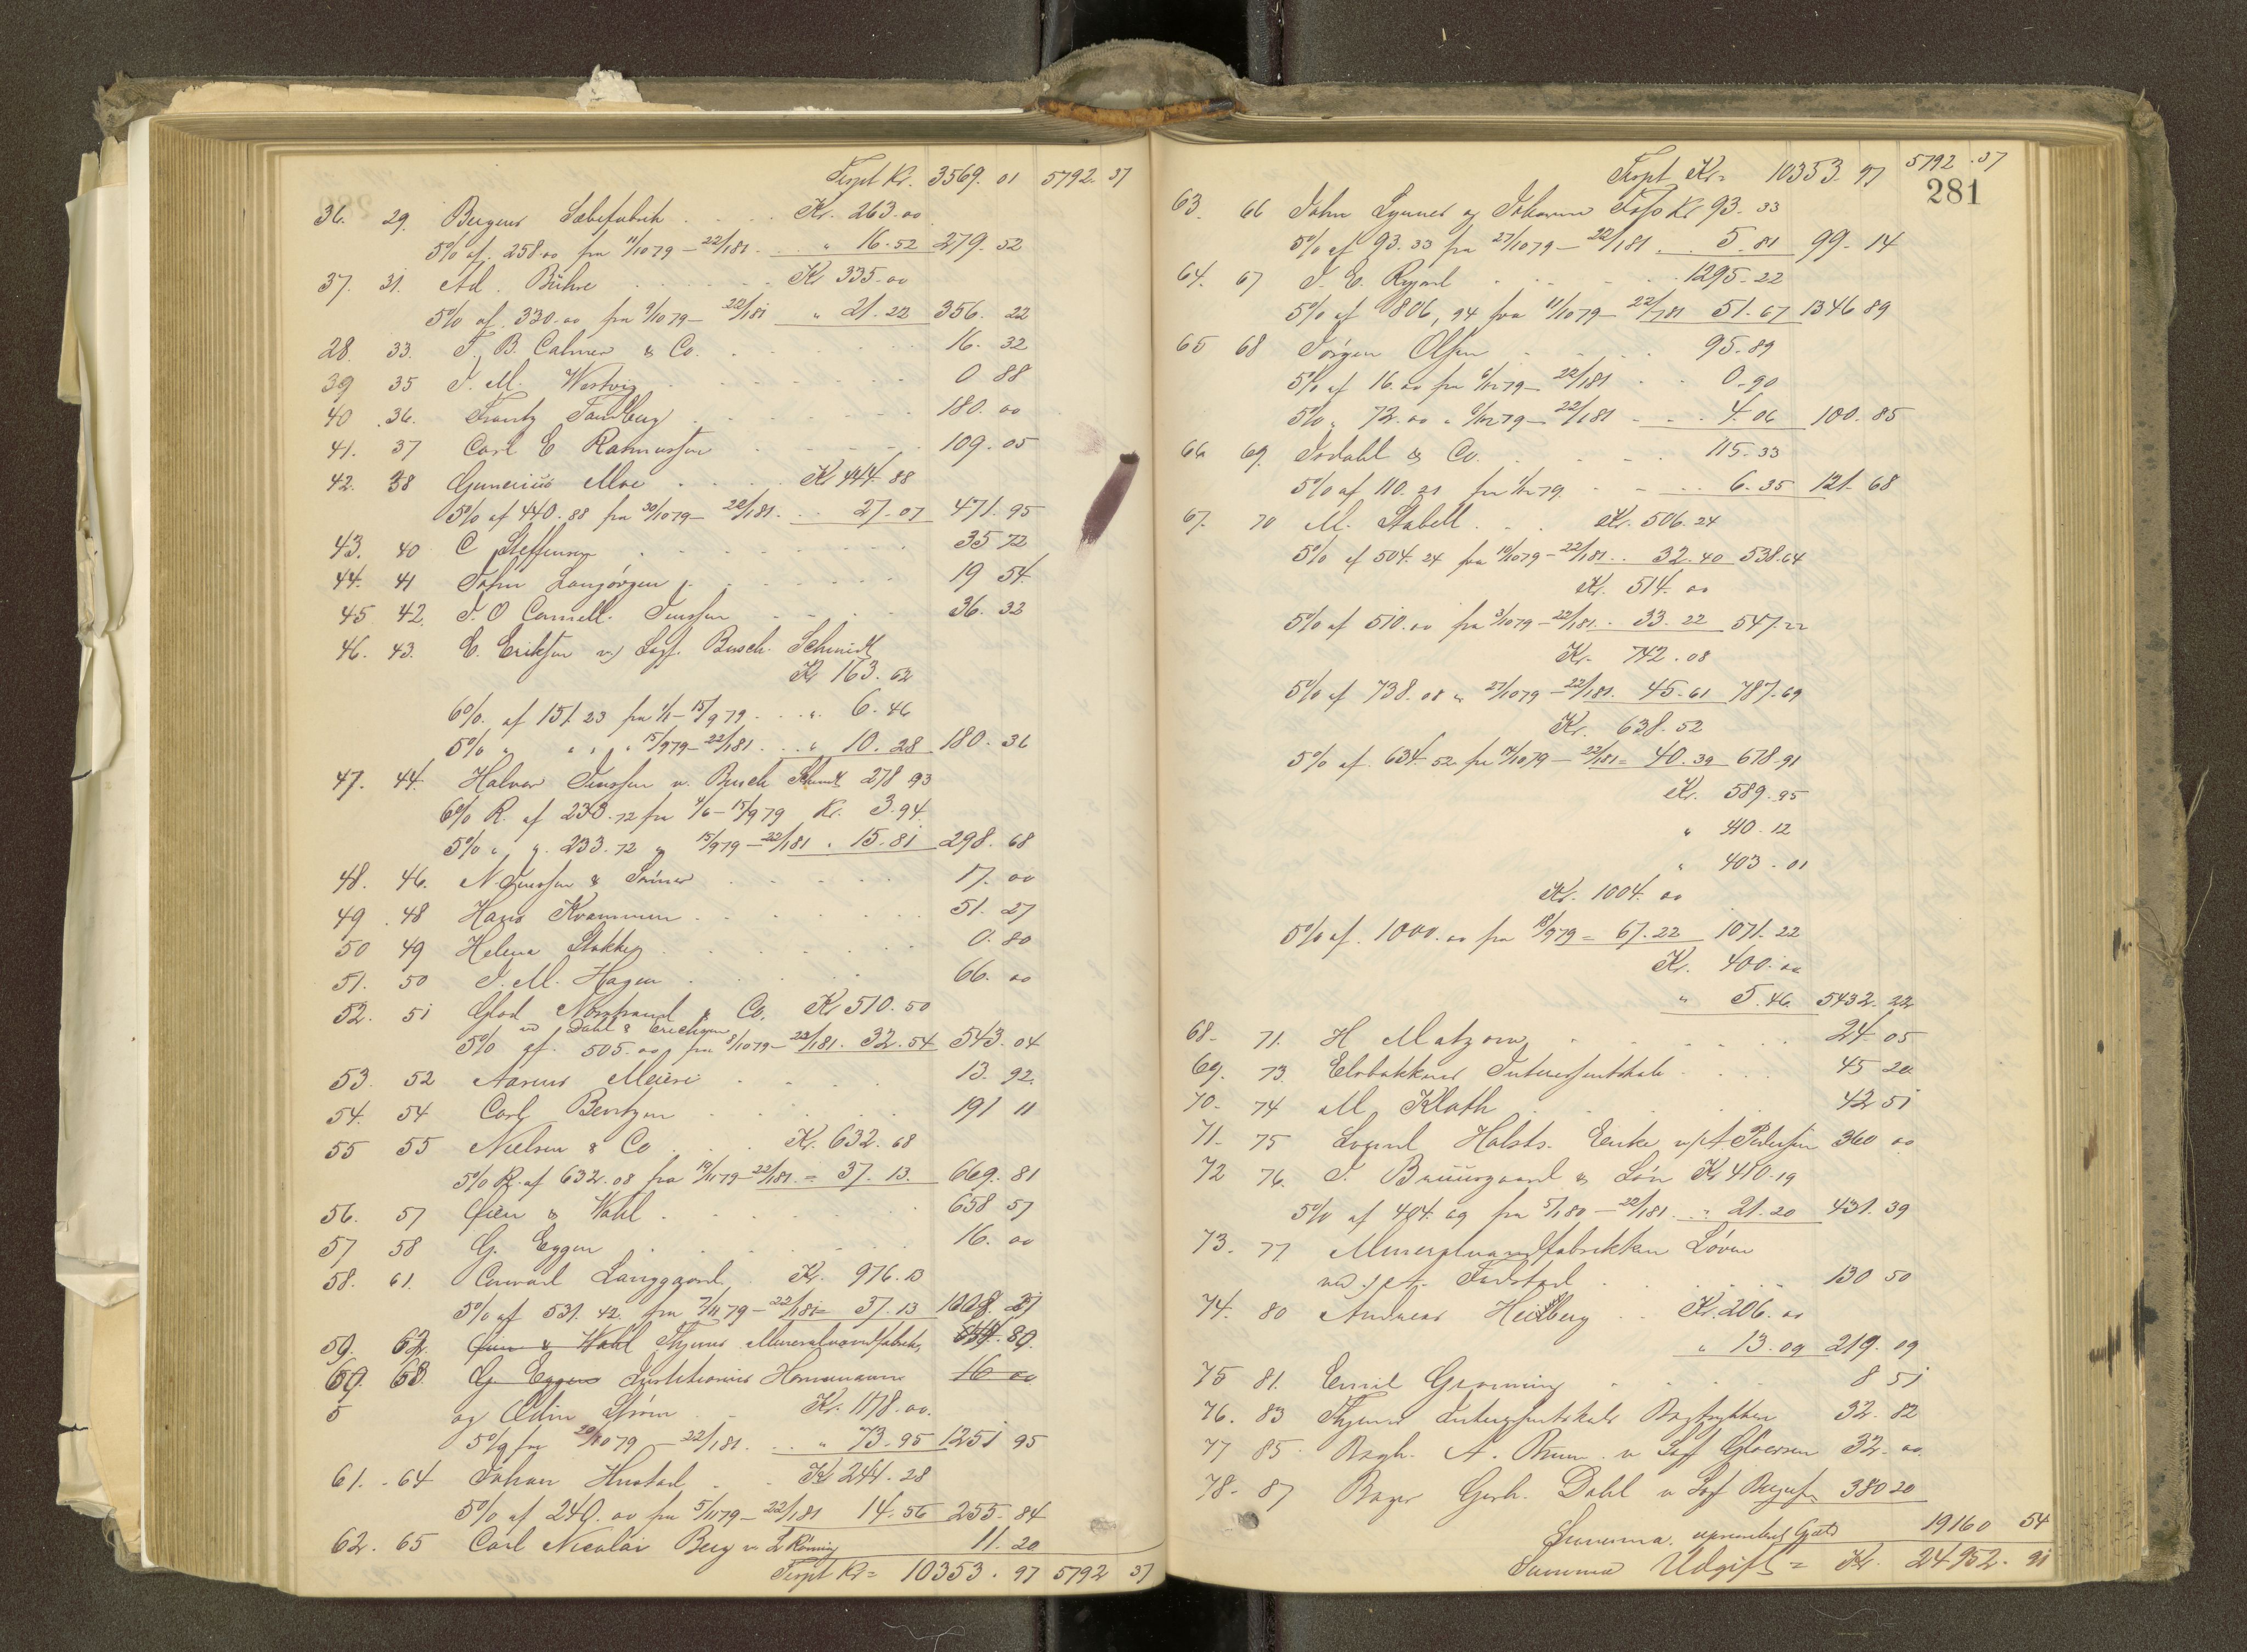 Trspt Kr. 3569. 01 5792. 37
36. 29. Bergens Sæbefabrik Kr. 263.00
5% af 258.00 fra 11/10 79 – 22/1 81 " 16.52 279. 52
37. 31. Ad. Bühre Kr 335.00
5% af 330.00 fra 9/10 79 – 22/1 81 " 21.22 356. 22
28. 33. F. B. Calmer & Co. 16. 32
39 35 J. M. Westvig 0 88
40 36. Frantz 180. 00
41. 37 Carl E Rasmussen 109. 05
42. 38 Gunerius Moe Kr 444.88
5% af 440.88 fra 30/10 79 – 22/1 81 27.07 471. 95
43. 40 C Steffensen 35 72
44. 41 John 19 54
45 42. J. O Jenssen 36. 32
46. 43. E. Eriksen v/ Sagf. Busch. Schmidt
Kr 163. 62
6% af 151.23 fra 1/1 – 15/9 79 " 6.46
5% " " " 15/9 79 – 22/1 81 " 10.28 180. 36
47. 44. Halvor Jenssen v. Busch Schmidt 278 93
6% R. af 233.72 fra 4/6 – 15/9 79 Kr. 3.94
5% " " 233.72 " 15/9 79 – 22/1 81 " 15.81 298. 68
48. 46. N. Jenssen & Sønner 17. 00
49 48 Hans Kvammen 51. 27
50 49 Helena Stokke 0. 80
51. 50 J. M. Hagen 66. 00
52. 51 Glad Nordstrand & Co. Kr 510.50
v/ Dahl & Erichsen
5% af 505.00 fra 8/10 79 – 22/1 81. 32.54 543. 04
53. 52 Aasens Meieri 13. 92.
54. 54 Carl Bentzen 191 11
55 55 Nielsen & Co Kr. 632.68
5% R. af 632.08 fra 19/11 79 – 22/1 81. = 37.13. 669. 81
56. 57 Øien & Wahl 658 57
57 58 G. Eggen 16. 00
58. 61. Conrad Langgaard Kr. 976.13
5% af 531.42 fra 7/11 79 – 22/1 81 = 37.13 1008. 21
59. 62. Øien & Wahl Thjems Mineralvandfabrik 80.
60. 63. G. Eggen Hornemann 16 00
5 og Odin Strøm Kr. 1178.00.
5% fra 20/10 79 – 22/1 81. " 73.95 1251 95
61. 64 Johan Hustad Kr 244.28
5% af 240.00 fra 5/11 79 – 22/1 81 14.56 255. 84
62. 65 Carl Nicolai Berg v. L Rønning 11. 20
Trspt Kr = 10353. 97 5792 37
Trspt Kr = 10353. 97 5792.37
281
63. 66 John Lynner og Johanne Kr 93. 33
5% af 93.33 fra 27/10 79 – 22/1 81 5.81 99. 14
64. 67 J. E. 1295.22
5% af 806,94 fra 11/10 79 – 22/1 81 51.67 1346 89
65 68 Jørgen Olsen 95.89
5% af 16.00 fra 6/12 79 – 22/1 81 0.90
5% " 72.00 " 9/12 79 – 22/1 81 4.06 100. 85
66 69. Isdahl & Co. 115.33
5% af 110.21 fra 1/12 79. 6.35 121. 68
67. 70 M. Stabell Kr. 506.24
5% af 504.24 fra 10/10 79 – 22/1 81 32.40 538.64
Kr. 514. 00
5% af 510.00 fra 3/10 79 – 22/1 81. 33.22 547.22
Kr. 742.08
5% af 738.08 " 27/10 79 – 22/1 81. 45.61 787.69
Kr. 638.52
5% af 634.52 fra 14/10 79 – 22/1 81 = 40.39 678.91
Kr. 589.95
" 410.12
" 403.01
Kr. 1004. 00
5% af 1000.00 fra 18/9 79 = 67.22 1071.22
Kr. 400.00
" 5.46 5432. 22
68. 71. H Matzow 24 05
69. 73. Elvbakkens Interessentskab 45 20
70. 74 M. Klath 42 51
71. 75 Holsts Enke v/ A Pedersen 360 00
72 76. J. Bruusgaard & Søn Kr 410.19
5% af 404.69 fra 5/1 80 – 22/1 81 " 21.20 431. 39
73. 77. Mineralvandfabrikken Løven
ved 130 50
74. 80 Andreas Heidberg Kr. 206.00
" 13.09 219. 09
75 81. Emil Grønning 8 51
76. 83 Thjems Interessentskabs Bogtrykkeri 32. 82
77 85. Bogh. A. Bruun v Sagf Gløersen 32. 00
78. 87 Bager Gerh. Dahl v Sagf 380 20
Summa. Gjæld 19160 54
Summa Udgift = Kr. 24952. 91